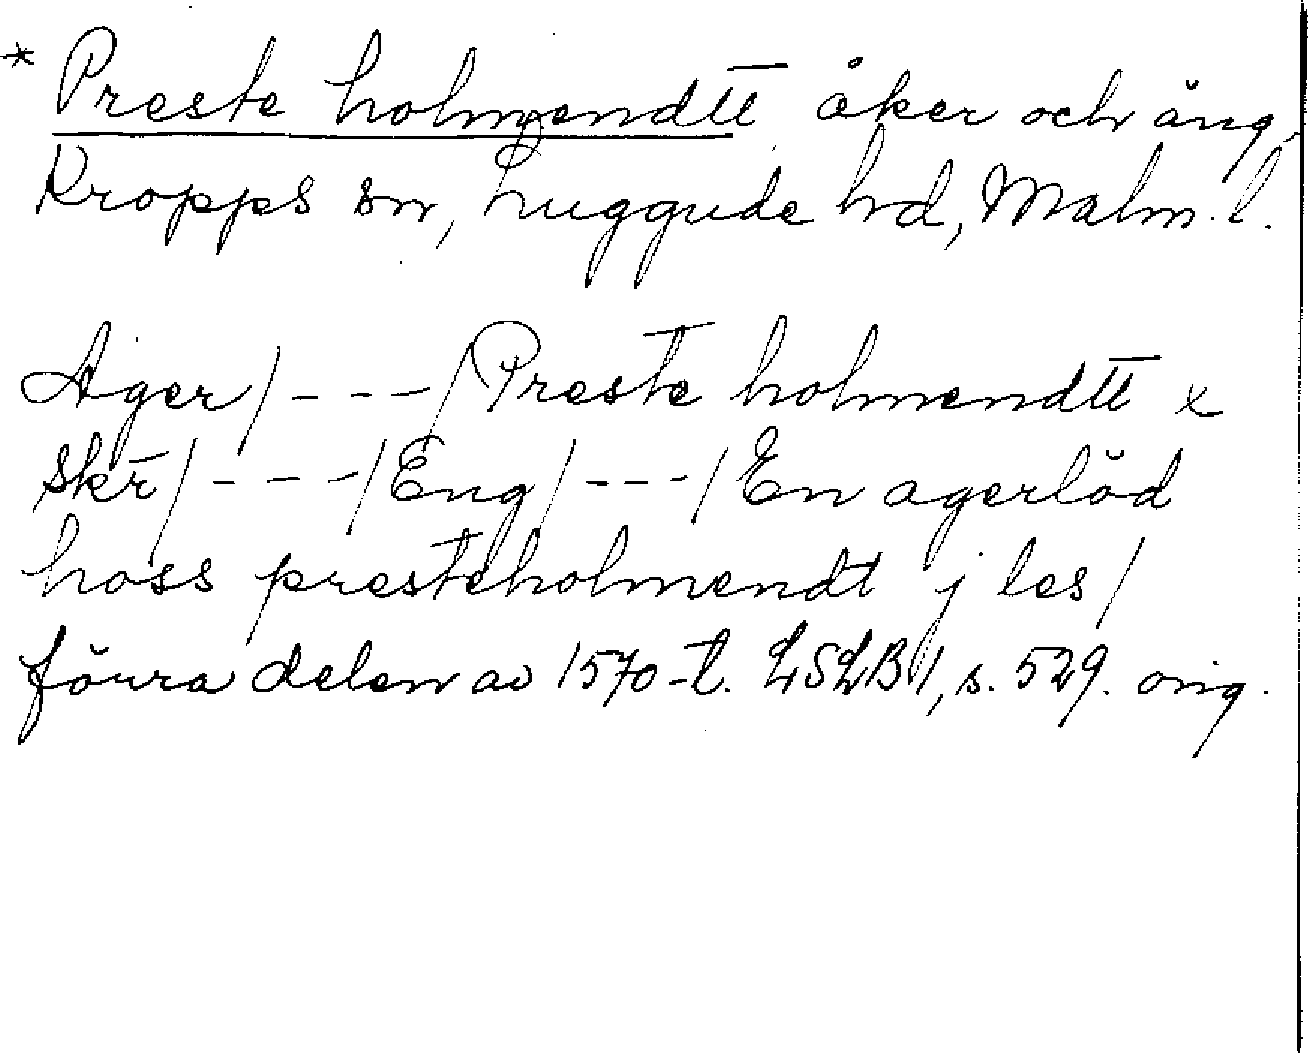 * Preste holmendtt åker och äng,
Kropps sn, Luggude hd, Malm. l.
Ager/ - - - /Preste holmendtt x
skr̄/ - - - /Eng/ - - - /En agerlöd
hoss presteholmendt j les/
förra delen av 1570-t. LSLB 1, s. 529. orig.